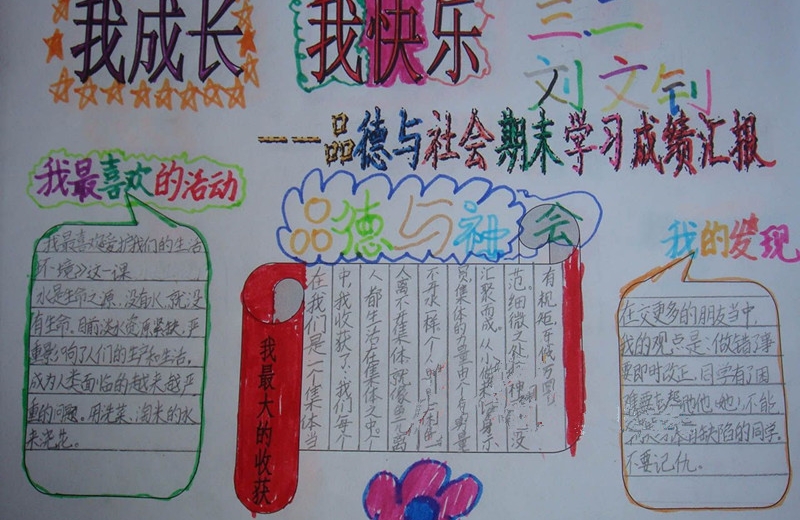 我成长 我快乐
三.二
刘文钊
——品德与社会期末学习成绩汇报
我最喜欢的活动
我最喜欢《爱护我们的生活
环境》这一课
水是生命之源,没有水,就没
有生命。目前,淡水资源紧缺,严
重影响了人们的生产和生活。
成为人类面临的越来越严
重的问题。用洗菜、淘米的水
来浇花。
品德与社会
有规矩,
范。细微之处 神 没
汇聚而成。从小做
集体的力量由个
不开水一样。个人
人离不开集体,就像鱼儿离
人都生活在集体之中。个
中我收获了:我们每个
在我们是一个集体当
我最大的收获
我的发现
在交更多的朋友当中,
我的观点是:做错了事
要即时改正。同学有了困
难要去帮他他(她),不能
有缺陷的同学。
不要记仇。